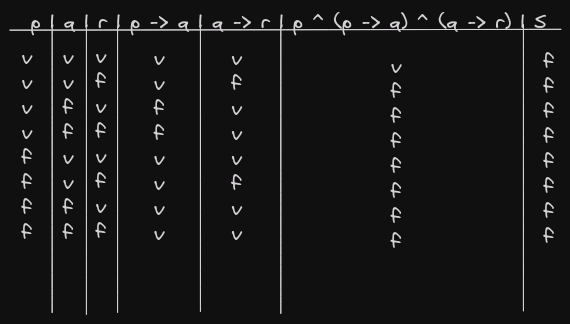 p | q | r | p -> q | q -> r | p ^ (p -> q) ^ (q -> r) | S
v v v v v v f
v v f v f f f
v f v f v f f
v f f f v f f
f v v v v f f
f v f v f f f
f f v v v f f
f f f v v f f